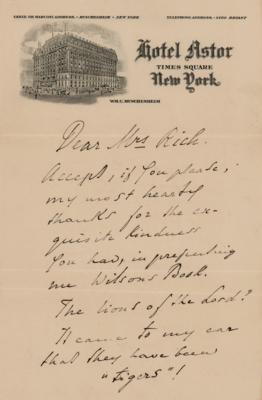 CABLE OR MARCONI ADDRESS, - MUSCHENHEIM - NEW YORK
TELEPHONE ADDRESS, - 2100 BRYANT
Hotel Astor
TIMES SQUARE
New York.
WM. C. MUSCHENHEIM
Dear Mrs Rich.
Accept, if you please,
my most hearty
thanks for the ex-
quisite kindness
You had, in presenting
me Wilsons Book.
The lions of the Lord?
It came to my ear
that they have been
"tigers"!